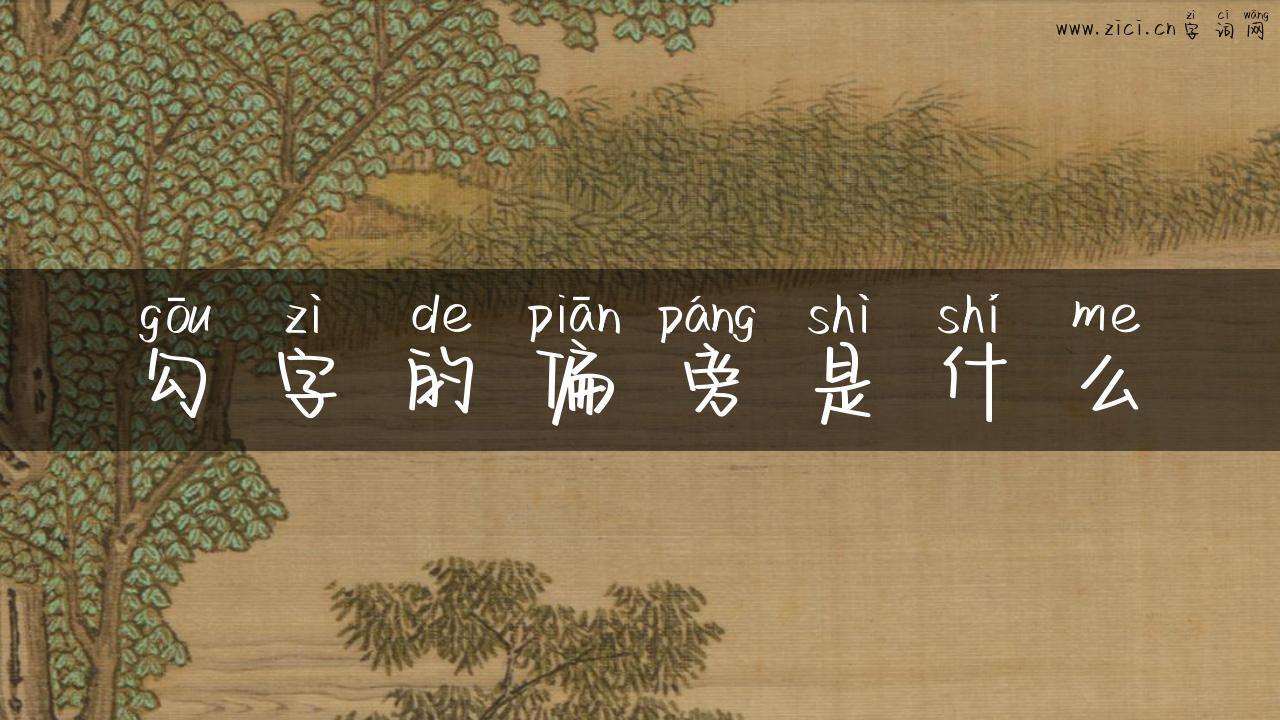 zì cí wǎng
www.zici.cn字词网
gōu zì de piān páng shì shí me
勾字的偏旁是什么